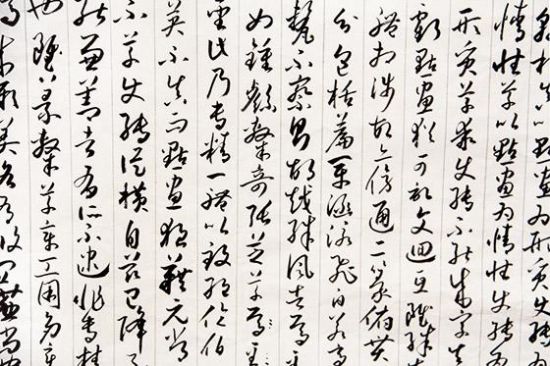 真以點畫為形質使轉為
情性草以點畫為情性使轉為
形質草乖使轉不能成字真
虧點畫猶可記文迴互雖殊
體相涉故亦傍通二篆俯貫
分包括篇章涵泳飛白若毫
氂不察則胡越殊風者焉至
如鍾繇隸奇張芝草聖
此乃專精一體以致絕倫伯
英不真而點畫狼藉元常
不草使轉縱橫自茲已降不
能兼善者有所不逮非專精
也雖篆隸草章工用多變
成厥美各有攸宜篆尚婉